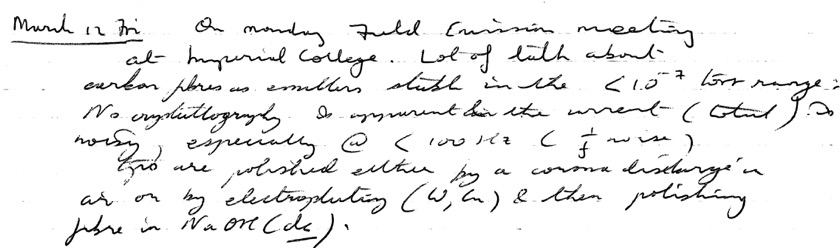 March 12 Fri On monday Field Emission meeting
at Imperial College. Lot of talk about
carbon fibres as emitters stable in the < 10⁻⁷ torr range:
No crystallography is apparent & the current (total) is
noisy, especially @ < 100 Hz ( 1/f noise )
Tips are polished either by a corona discharge in
air or by electroplating (W, Cu) & then polishing
fibre in NaOH (dc).